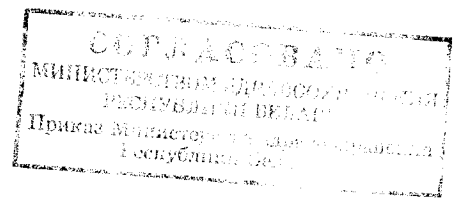 СОГЛАСОВАНО
МИНИСТЕРСТВОМ ЗДРАВООХРАНЕНИЯ
РЕСПУБЛИКИ БЕЛАРУСЬ
Приказ Министерства здравоохранения
Республики